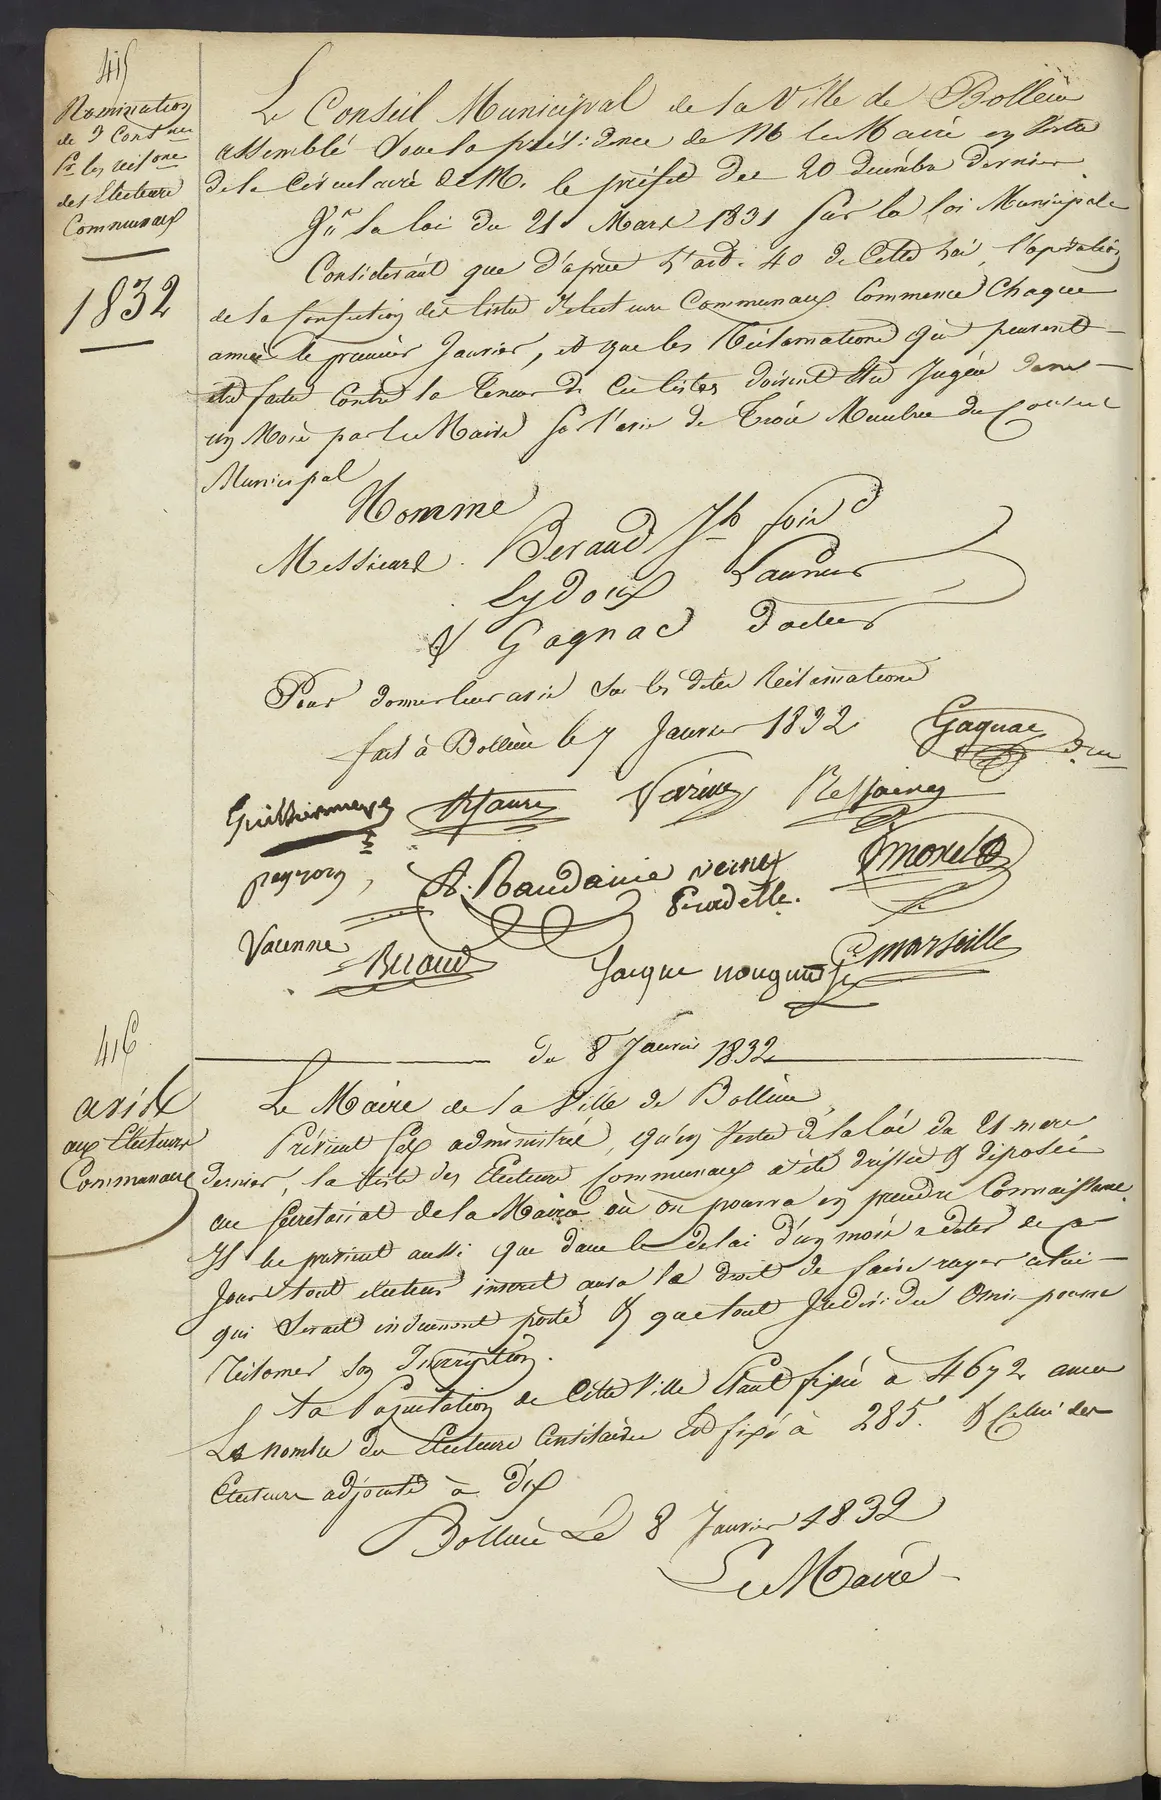 415
Nomination
de 3 Cons.ers
Pr les récl.ons
des Electeurs
Communaux
1832
Le Conseil Municipal de la Ville de Bollène
assemblé sous la présidence de M le Maire en Vertu
de la Circulaire de M. le préfet du 20 décembre dernier
Vu la loi du 21 Mars 1831 sur la loi Municipale
Considérant que d'après l'art. 40 de Cette Loi, l'opération
de la Confection des listes d'electeurs Communaux Commence Chaque
année le premier Janvier, et que les Réclamations qui peuvent
être faites Contre la Teneur de Ces listes doivent être Jugées dans
un Mois par le Maire sur l'avis de Trois Membres du Conseil
Municipal
Nomme
Messieurs Beraud Jh
Lydoux
& Gagnac docteur
Pour donner leur avis sur les dites Réclamations
fait à Bollène le 7 Janvier 1832
Gagnac
Guilhermeye Faure Varine Ressaire
peyron, Baudaine Morel
Pradelle.
Varenne Beraud Jacque nougued Marseille
du 8 Janvier 1832
416
avis
aux Electeurs
Communaux
Le Maire de la Ville de Bollène
Prévient ses administrés, qu'en Vertu de la loi du 21 mars
dernier, la liste des Electeurs Communaux a été dressée & déposée
au Secrétariat de la Mairie où on pourra en prendre Connaissance.
Il les prévient aussi que dans le délai d'un mois à dater de ce
Jour tout electeur inscrit aura le droit de faire rayer celui
qui Serait induement porté & que tout Individu Omis pourra
Réclamer son Inscription.
La Population de Cette Ville Etant fixée à 4672 ames
Le nombre des Electeurs Censitaires Est fixé à 285. & Celui des
Electeurs adjoints à dix
Bollène Le 8 Janvier 1832
Le Maire